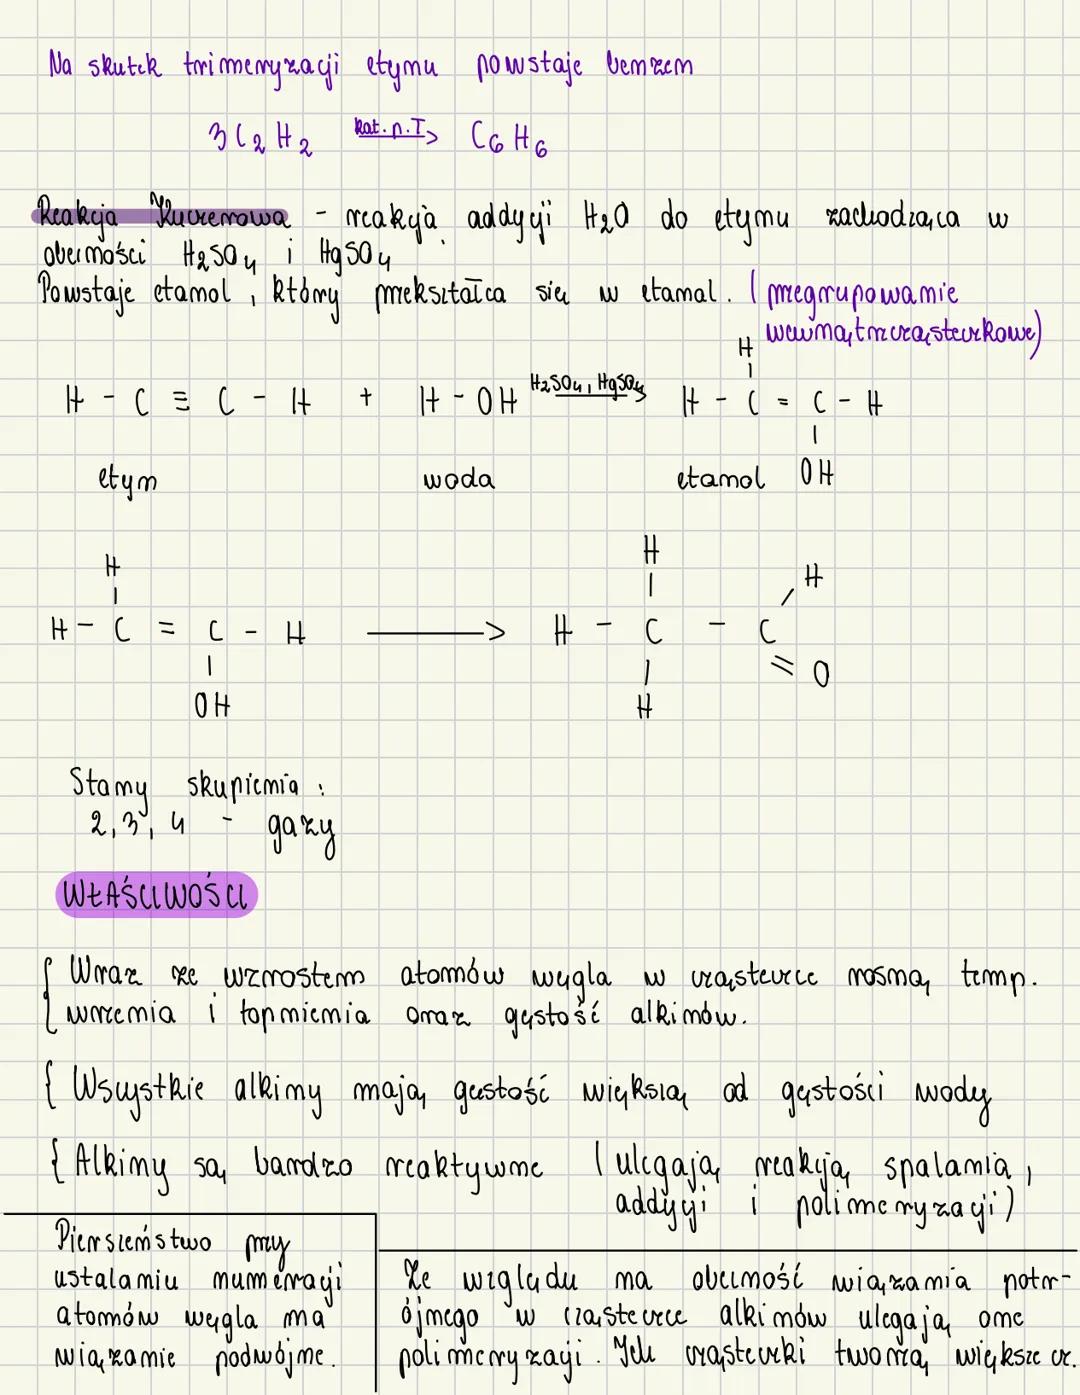 Na skutek trimeryzacji etynu powstaje benzen
3C₂H₂ kat. p.T> C₆H₆
Reakcja Kuczerowa - reakcja addycji H₂O do etynu zachodząca w
obecności H₂SO₄ i HgSO₄
Powstaje etanol, który przekształca się w etanal. (przegrupowanie
wewnątrzcząsteczkowe)
H
H - C ≡ C - H + H - OH H₂SO₄, HgSO₄> H - C = C - H
etyn woda etanol OH
H H
H
H - C = C - H ⟶ H - C - C
O
OH H
Stany skupienia:
2, 3, 4 - gazy
WŁAŚCIWOŚCI
{ Wraz ze wzrostem atomów węgla w cząsteczce rosną temp.
wrzenia i topnienia oraz gęstość alkinów.
{ Wszystkie alkiny mają gęstość większą od gęstości wody
{ Alkiny są bardzo reaktywne (ulegają reakcją spalania,
addycji i polimeryzacji)
Pierszeństwo przy
ustalaniu numeracji
atomów węgla ma
wiązanie podwójne.
Ze względu na obecność wiązania potr-
ójnego w cząsteczce alkinów ulegają one
polimeryzacji. Jeh cząsteczki tworzą większe cz.